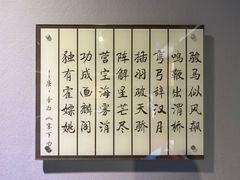 骏马似风飙
鸣鞭出渭桥
弯弓辞汉月
插羽破天骄
阵解星芒尽
营空海雾消
功成画麟阁
独有霍嫖姚
—唐·李白《塞下曲》